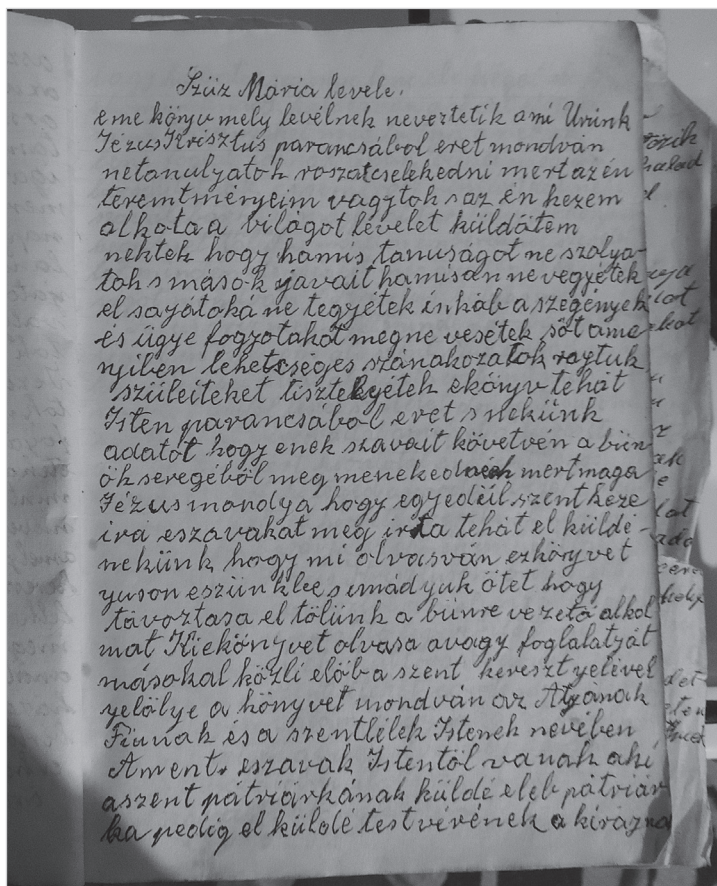 Szüz Mária levele.
eme könyv mely levélnek neveztetik ami Urunk
Jézus Krisztus parancsábol eret mondván
netanulyatok roszatcselekedni mertazén
teremtményeim vagytok s az én kezem
alkotaa bilágot levelet küldötem
nektek hogy hamis tanuságot ne szolya-
tok s mások javait hamisan ne vegyétek
el sajátoká ne tegyétek inkáb a szegények
és ügye fogyotakat megne vesétek söt ame
nyiben lehetséges szánakozatok rajtuk
szüleiteket tisztelyétek ekönyv tehát
Isten parancsábol eret s nekünk
adatot hogy enek szavait követvén a bün
ök seregéböl meg menekednénk mertmaga
Jézus mondya hogy egyedül szent keze
irá eszavakat meg irta tehát el külde-
nekünk hogy mi olvasván ezkönyvet
yuson eszünkbe s imádyuk ötet hogy
távoztasa el tölünk a bünre vezetö alkol
mat Kiekönyvet olvasa avagy foglalatját
másokal közli elöb a szent kereszt yelével
yelölye a könyvet mondván az Atyának
Fiunak és a szentlélek Istenek nevében
Ament. eszavak Istentöl vanak aki
aszent pátriárkának küldé eleb pátriár
ka pedig el küldé testvérének a királyna